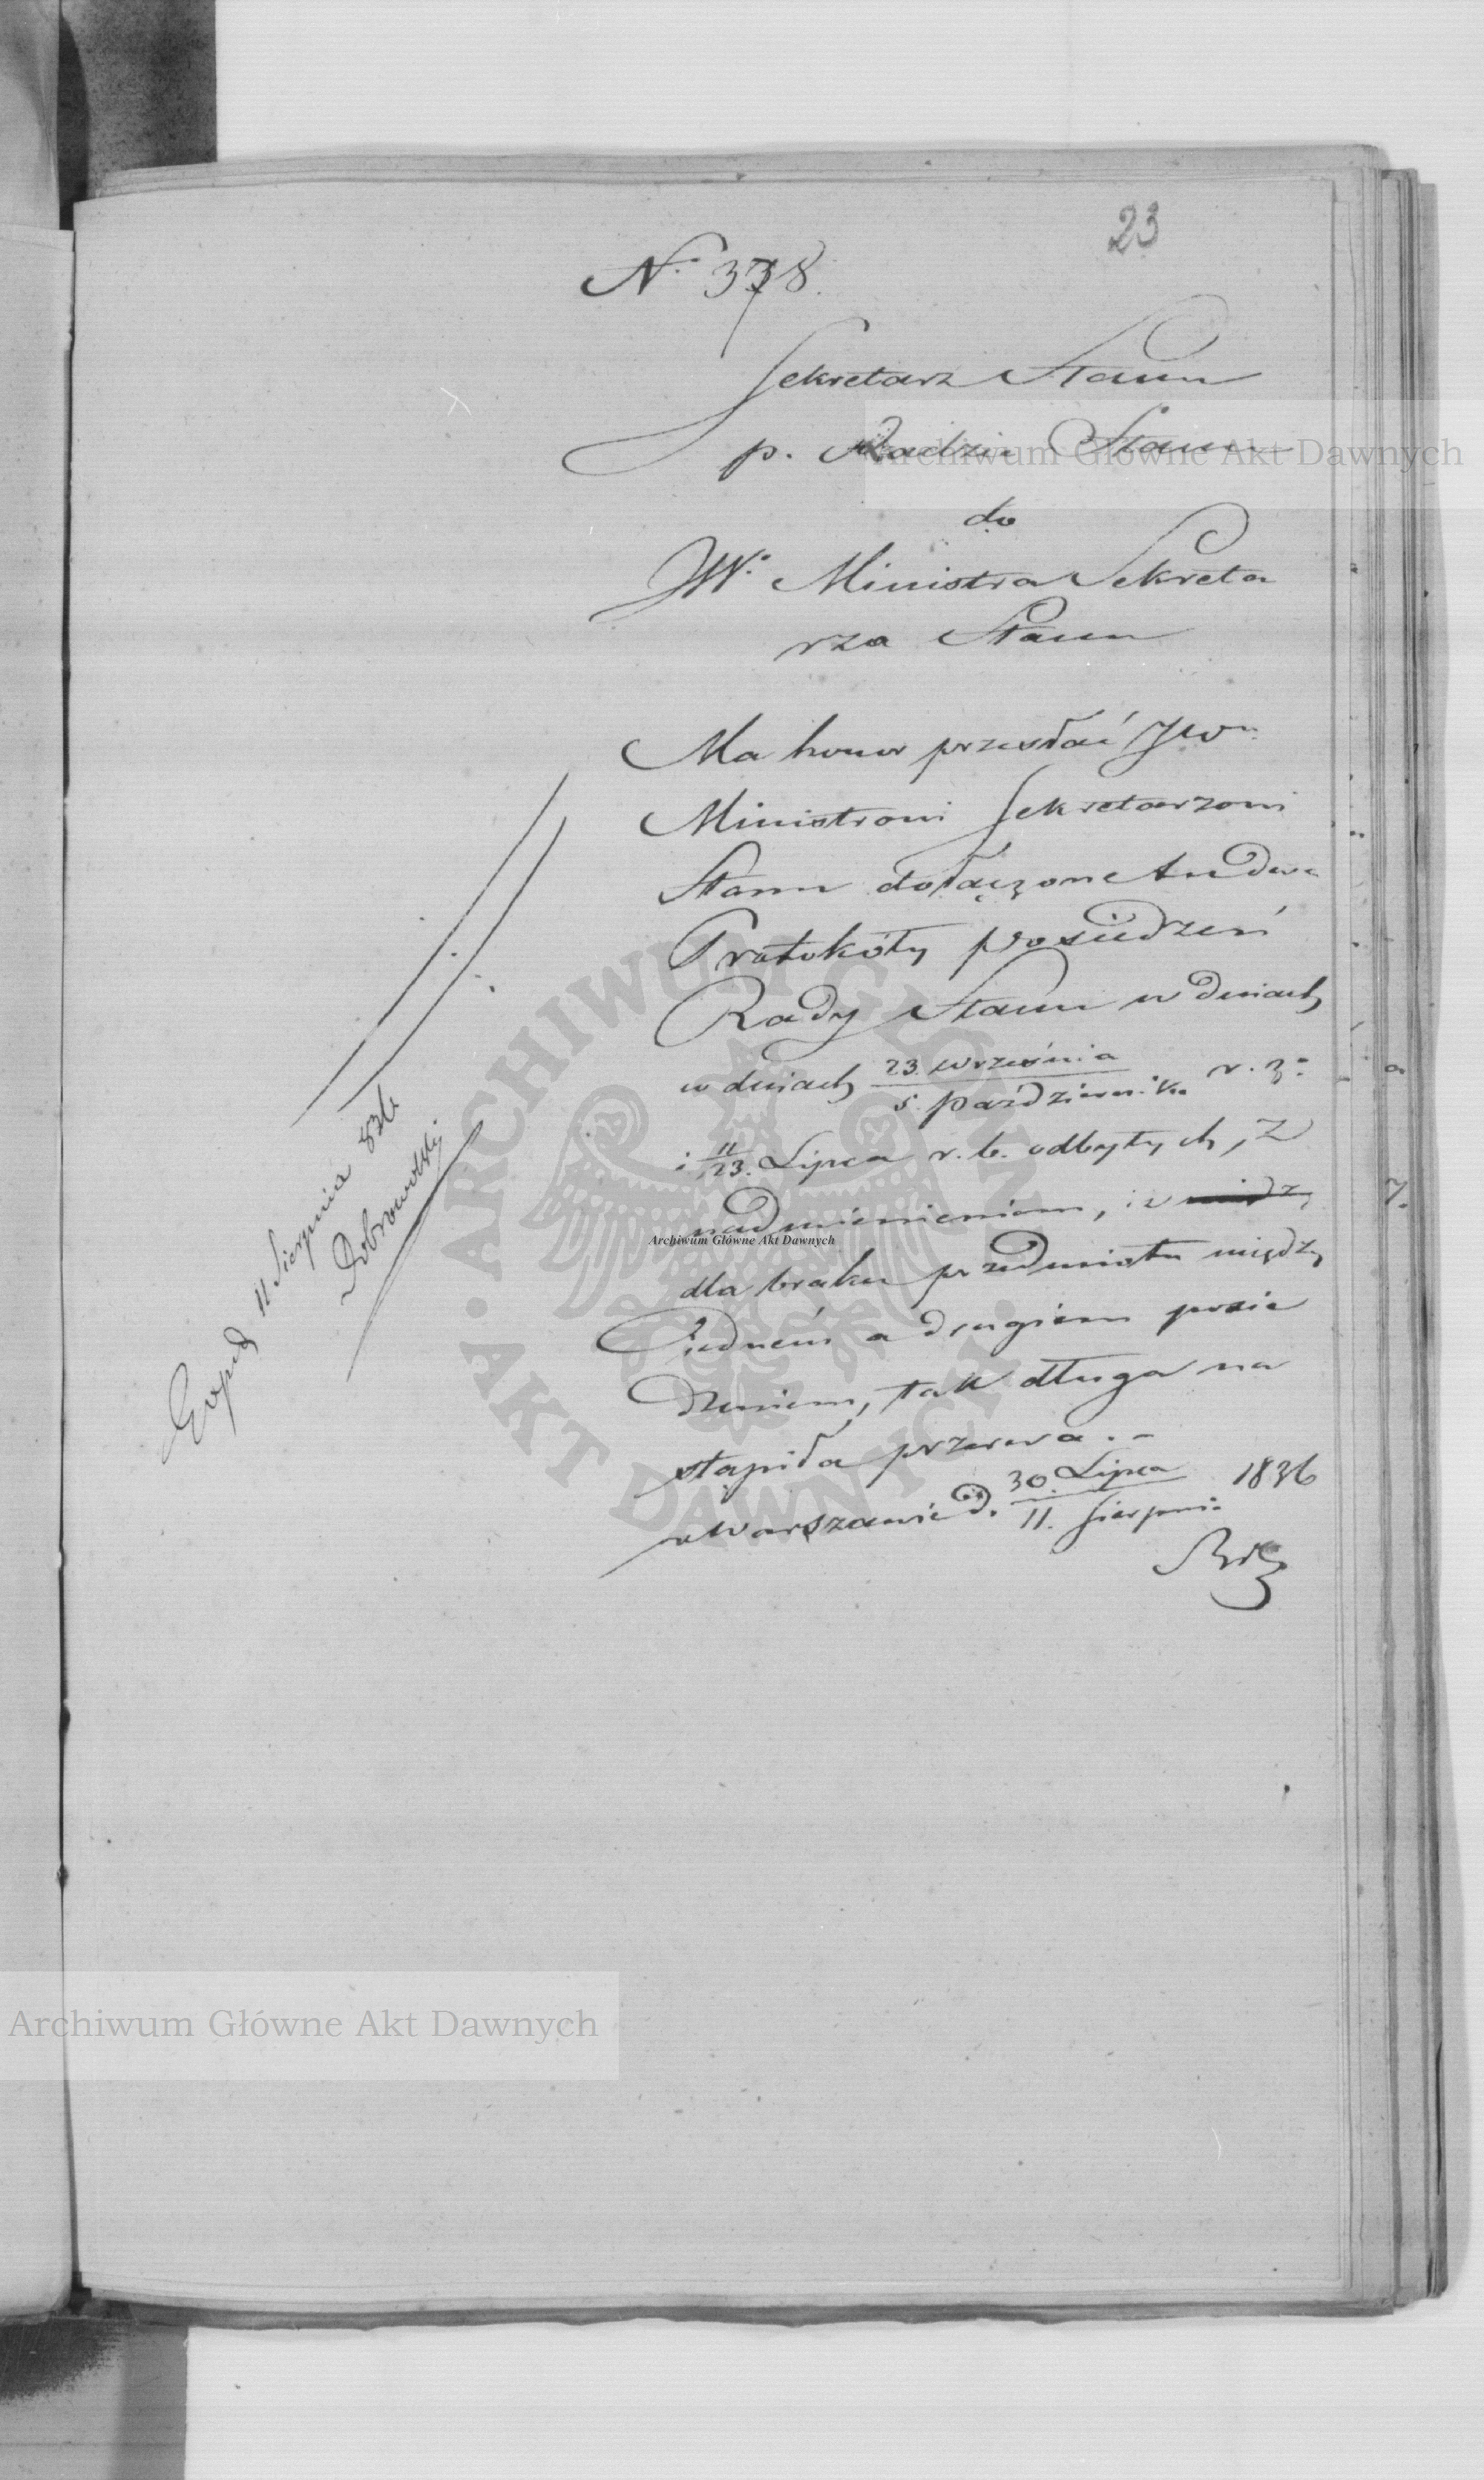 23
N. 378.
Sekretarz Stanu
p. Radzie Stanu
do
JW. Ministra Sekreta
rza Stanu
Ma honor przesłać JWu
Ministrowi Sekretarzowi
Stanu dołączone tu dwa
Protokóły posiedzeń
Rady Stanu w dniach
w dniach 23 września / 5 październik r. z.
i 11/23. Lipca r. b. odbytych, z
nadmienieniem, iż
dla braku przedmiotu między
jedném a drugiem posie
dzeniem, tak długa na
stąpiła przerwa. –
w Warszawie d. 30 Lipca / 11. Sierpnia 1836
Exped 11 Sierpnia 836
Dobrowolski
Archiwum Główne Akt Dawnych
Archiwum Główne Akt Dawnych
ARCHIWUM GŁÓWNE AKT DAWNYCH
Archiwum Główne Akt Dawnych